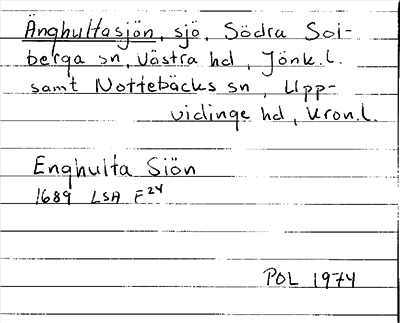 Änghultasjön, sjö, Södra Sol-
berga sn, Västra hd, Jönk.l.
samt Nottebäcks sn, Upp-
vidinge hd, Kron.l.
Enghulta Siön
1689 LSA F24
POL 1974